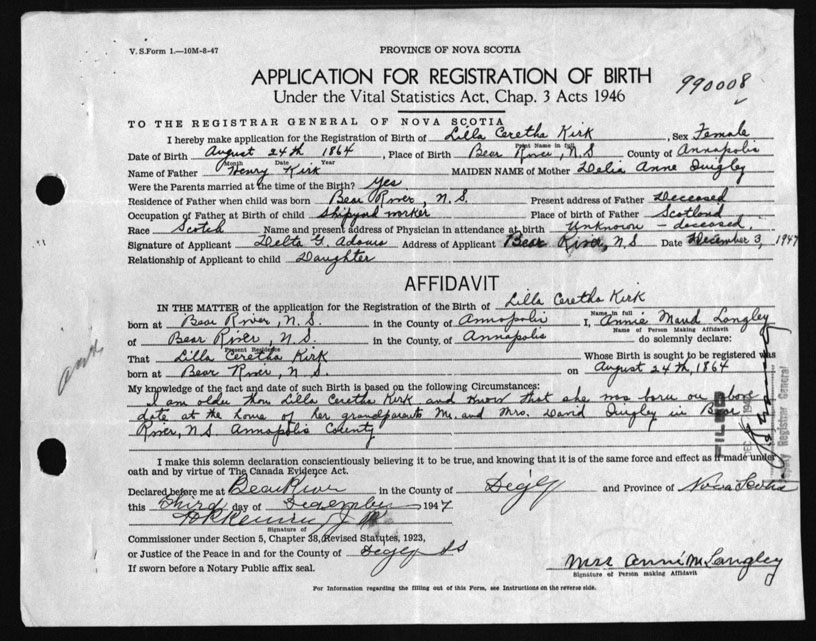 V. S. Form 1.—10M-8-47
PROVINCE OF NOVA SCOTIA
APPLICATION FOR REGISTRATION OF BIRTH
Under the Vital Statistics Act, Chap. 3 Acts 1946
990008
TO THE REGISTRAR GENERAL OF NOVA SCOTIA
I hereby make application for the Registration of Birth of Lilla Ceretha Kirk, Sex Female
Print Name in full
Date of Birth August 24th 1864, Place of Birth Bear River, N.S County of Annapolis
Month Date Year
Name of Father Henry Kirk MAIDEN NAME of Mother Delia Anne Quigley
Were the Parents married at the time of the Birth? Yes
Residence of Father when child was born Bear River, N.S. Present address of Father Deceased
Occupation of Father at Birth of child Shipyard worker Place of birth of Father Scotland
Race Scotch Name and present address of Physician in attendance at birth Unknown - deceased.
Signature of Applicant Delta G. Adams Address of Applicant Bear River, N.S Date December 3, 1947
Relationship of Applicant to child Daughter
AFFIDAVIT
IN THE MATTER of the application for the Registration of the Birth of Lilla Ceretha Kirk
Name in full
born at Bear River, N.S. in the County of Annapolis I, Annie Maud Langley
Name of Person Making Affidavit
of Bear River, N.S. in the County of Annapolis do solemnly declare:
Present Residence
That Lilla Ceretha Kirk Whose Birth is sought to be registered was
born at Bear River, N.S. on August 24th, 1864
My knowledge of the fact and date of such Birth is based on the following Circumstances:
I am older than Lilla Ceretha Kirk and know that she was born on above
date at the home of her grandparents Mr. and Mrs. David Quigley in Bear
River, N.S. Annapolis County
FILED
Deputy Registrar General
I make this solemn declaration conscientiously believing it to be true, and knowing that it is of the same force and effect as if made under
oath and by virtue of The Canada Evidence Act.
Declared before me at Bear River in the County of Digby and Province of Nova Scotia
this Third day of December 1947
Signature of
Commissioner under Section 5, Chapter 38, Revised Statutes, 1923,
or Justice of the Peace in and for the County of Digby
If sworn before a Notary Public affix seal.
Mrs Annie M Langley
Signature of Person making Affidavit
For Information regarding the filling out of this Form, see Instructions on the reverse side.